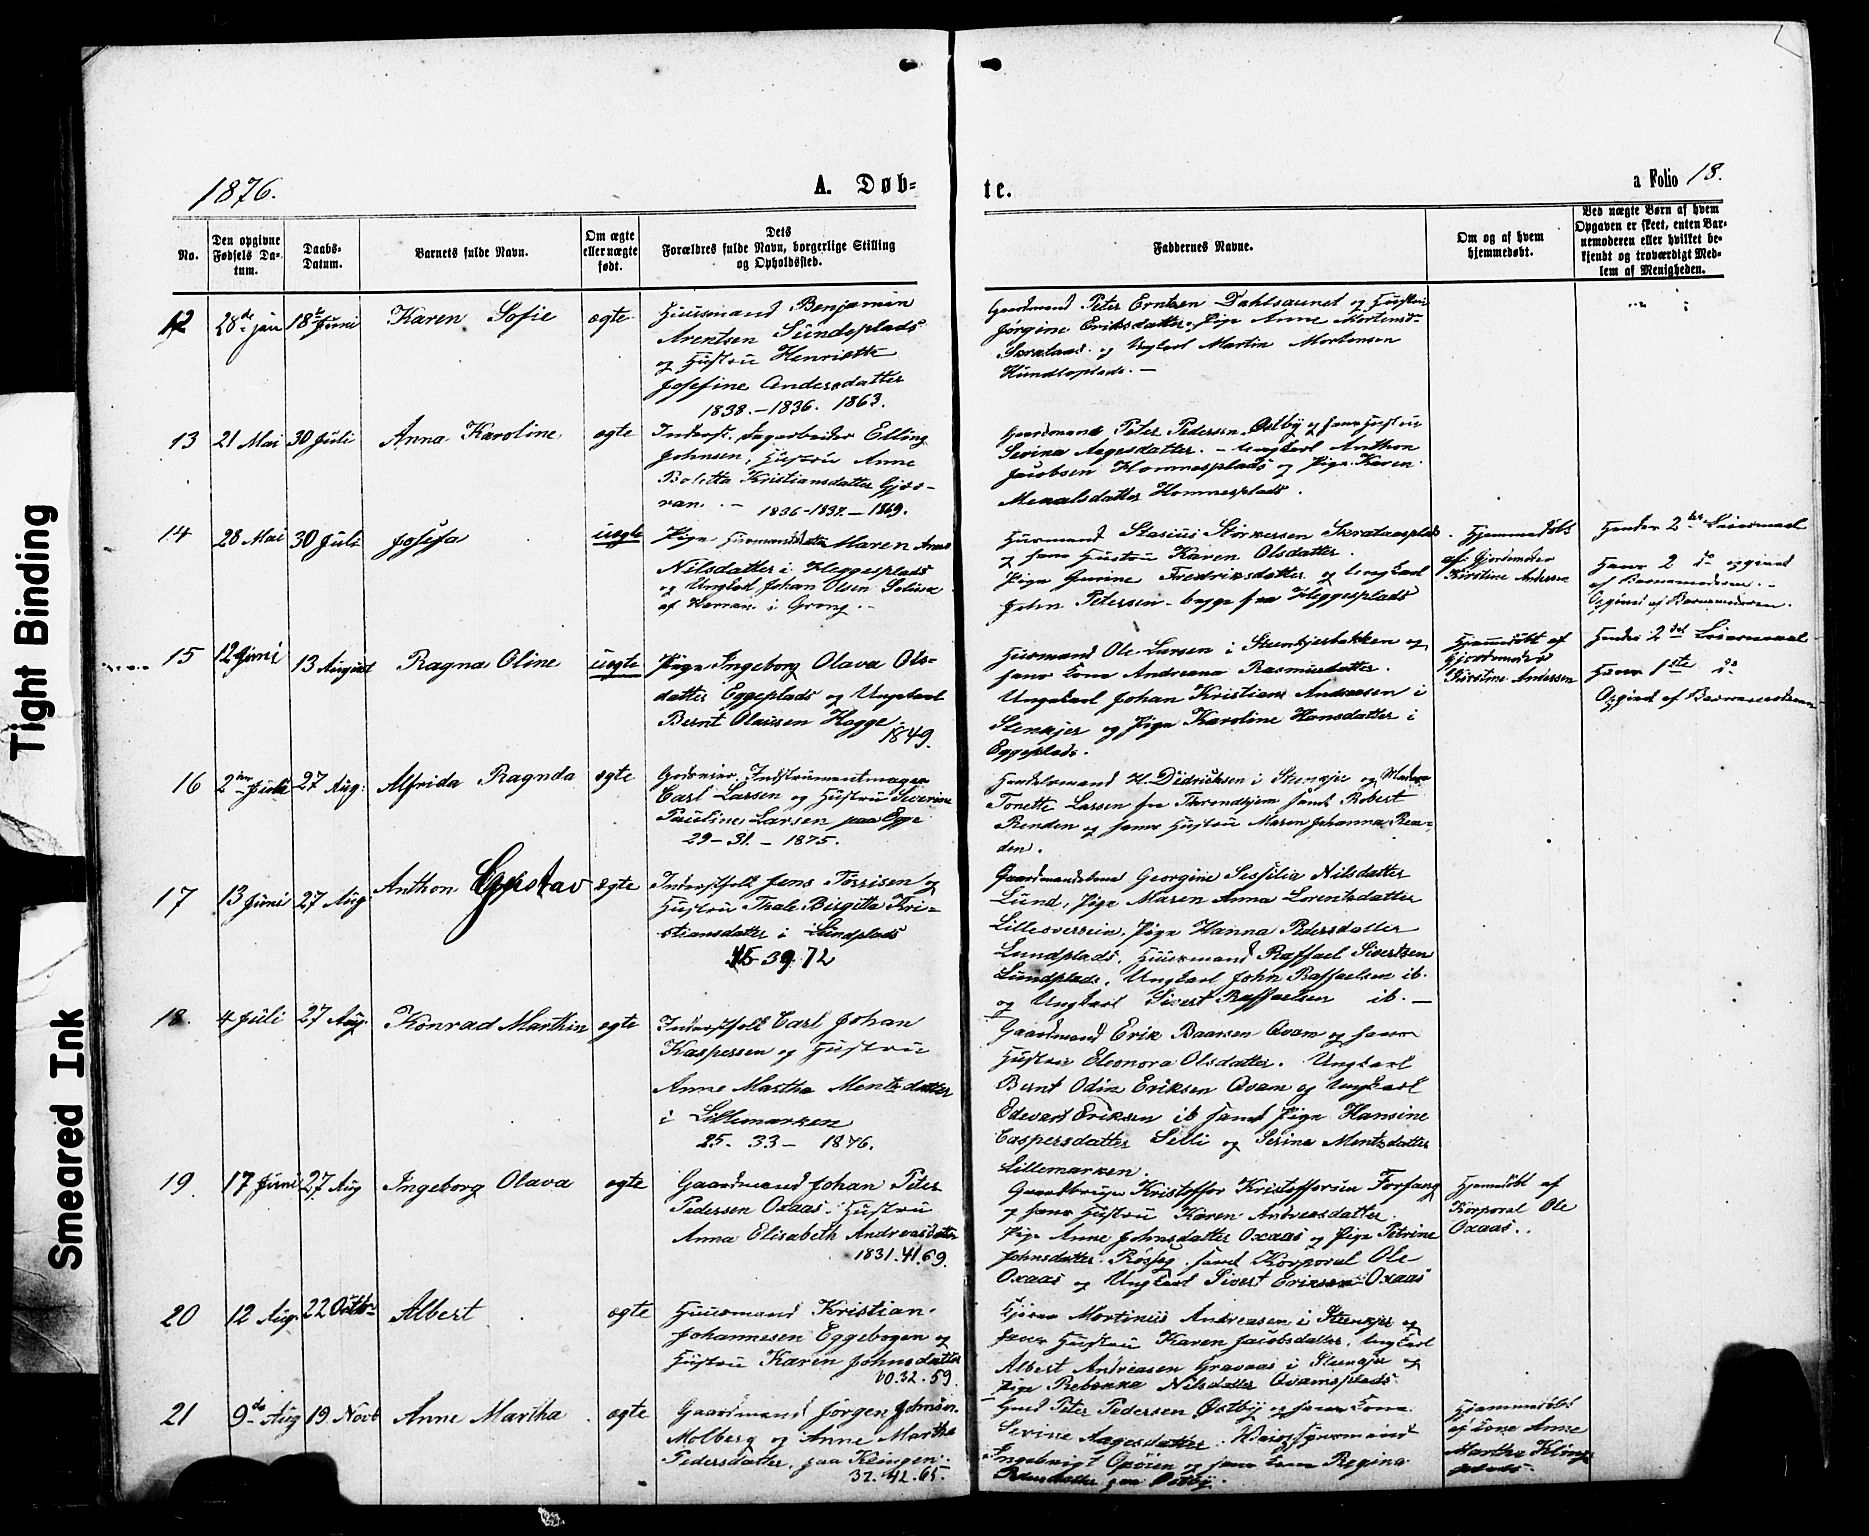 1876.
A. Døb-
te.
a Folio 18.
No.
Den opgivne Fødsels Da-
tum.
Daabs-
Datum.
Barnets fulde Navn.
Om ægte
eller uægte
født.
Dets
Forældres fulde Navn, borgerlige Stilling
og Opholdssted.
Faddernes Navne.
Om og af hvem
hjemmedøbt.
Ved uægte Børn af hvem
Opgaven er skeet, enten Bar-
nemoderen eller hvilket be-
kjendt og troværdigt Med-
lem af Menigheden.
12
28de jan
18de Juni
Karen Sofie
ægte
Huusmand Benjamin
Arentsen Sundsplads
og Hustru Henriette
Josefine Andersdatter
1838.-1836. 1863.
Gaardmand Peter Erntsen Dahlsaunet og Hustru
Jørgine Eriksdatter, Pige Anne Mortensd-
og Ungkarl Martin Mortensen
13
21 Mai
30 Juli
Anna Karoline
ægte
Inderst. Dagarbeider Elling
Johnsen, Hustru Anne
Boletta Kristiansdatter
1836-1837.-1869.
Gaardmand Peter Pedersen Østby og hans Hustru
Sevina Aagesdatter. - Ungkarl Anthon
Jacobsen Hammesplads og Pige Karen
14
28 Mai
30 Juli
Josefa
uægte
Pige Maren Anna
Nilsdatter i Heggesplads
og Ungkarl Johan Olsen
af Harran i Grong.
Husmand Stasius Størkersen
og hans Hustru Karen Olsdatter.
Pige Gurine Fredriksdatter og Ungkarl
John Petersen - begge fra Heggesplads
Hjemmedøbt
af Gjordemoder
Kirstine Andersen
Hendes 2det Leiermaal
Hans 2 do opgived
af Barnemoderen.
Opgived af Barnemoderen.
15
12 Juni
13 August
Ragna Oline
uægte
Pige Ingeborg Olava Ols-
datter Eggeplads og Ungkarl
Bernt Olausen Hegge.
1849.
Husmand Ole Larsen i Steenkjerbakken og
hans Kone Andreana Rasmusdatter.
Ungkarl Johan Kristian Andreasen i
Stenkjer og Pige Karoline Hansdatter i
Eggeplads.
Hjemmedøbt af
Gjordemoder
Kirstine Andersen
Hendes 2det Leiermaal
Hans 1ste do
Opgived af Barnemoderen
16
27 Aug.
Alfrida Ragnda
ægte
Instrumentmager
Carl Larsen og Hustru Severine
Pauline Larsen paa Egge
29-31.-1875.
Handelsmand H. Didricksen i Steenkjer og Madam
Tonette Larsen fra Throndhjem samt Robert
Renden og hans Hustru Maren Johanna Ren-
den.
17
13 Juni
27 Aug
Anthon Gustav
ægte
Inderstfolk Jens Torrisen og
Hustru Thale Birgitta Kri-
stiansdatter i Lundplads
45-39. 72
Gaardmandskone Georgine Sessilia Nilsdatter
Lund, Pige Maren Anna Lorentsdatter
Pige Hanna Pedersdatter
Lundplads, Huusmand Raffael Sivertsen
Lundplads, Ungkarl John Raffaelsen ib.
og Ungkarl Sivert Raffaelsen ib. -
18
4 Juli
27 Aug.
Konrad Marthin
ægte
Inderstfolk Carl Johan
Kaspersen og Hustru
Anne Martha Mentsdatter
i Lillemarken
25. 33- 1876.
Gaardmand Erik Baarsen Qvam og hans
Hustru Eleonora Olsdatter. Ungkarl
Bernt Odin Eriksen Qvam og Ungkarl
Edevard Eriksen ib samt Pige Hansine
Caspersdatter Selli og Serine Mentsdatter
Lillemarken.
19
17 Juni
27 Aug
Ingeborg Olava
ægte
Gaardmand Johan Peter
Pedersen Oxaas. Hustru
Anna Elisabeth Andreasdatter
1831. 41. 69.
Gaardbruger Kristoffer Kristoffersen Forfang
og hans Hustru Karen Andreasdatter.
Pige Anne Johnsdatter Oxaas og Pige Petrine
Johnsdatter samt Korporal Ole
Oxaas og Ungkarl Sivert Eriksen Oxaas
Hjemdøbt af
Korporal Ole
Oxaas.
20
12 Aug.
22 Octbr
Albert
ægte
Huusmand Kristian
Johannesen Eggebogen og
Hustru Karen Johnsdatter
32. 59.
Martinus Andreasen i Steenkjer og
hans Hustru Karen Jacobsdatter, Ungkarl
Albert Andreasen i Steenkjer og
Pige Rebekka Nilsdatter Qvamsplads.
21
9de Aug
19 Novb
Anne Martha
ægte
Gaardmand Jørgen Johnsen
Molberg og Anne Martha
Pedersdatter, paa Klingen.
37. 42. 65.
Peter Pedersen Østby og hans Kone
Sevine Aagesdatter.
Ingebrigt og hans Kone Regina
Pedersdatter paa Østby.
Hjemmedøbt
af Kone Anne
Martha Kling-
plads.
Tight Binding
Smeared Ink